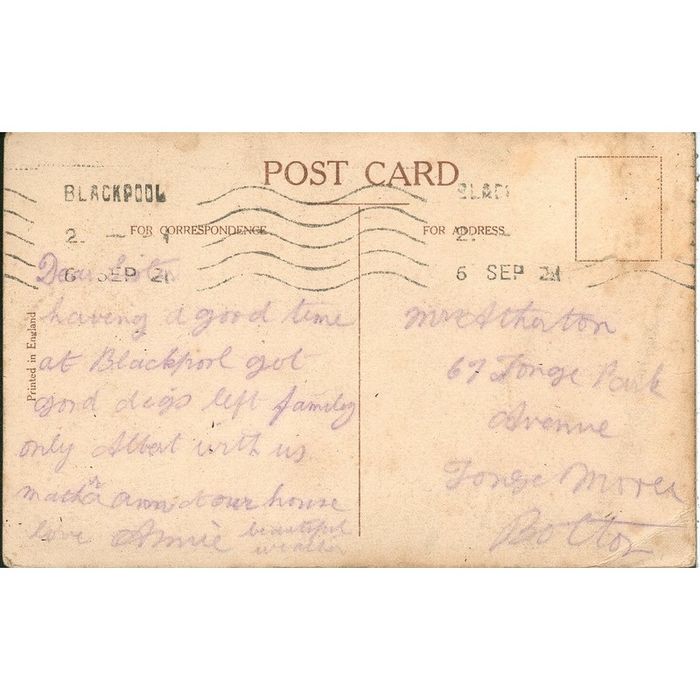 POST CARD
BLACKPOOL
2. — 1
6 SEP 21
BLAC
2. -
6 SEP 21
FOR CORRESPONDENCE
FOR ADDRESS
Printed in England
Dear Sister
having a good time
at Blackpool got
good digs left family
only Albert with us
at our house
love Annie beautiful
weather
Mrs Atherton
67 Tonge Park
Avenue
Tonge Moor
Bolton